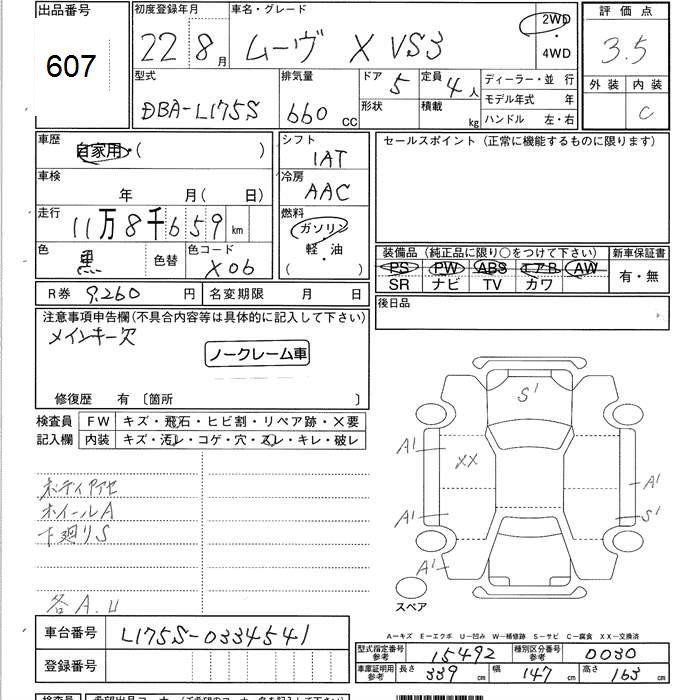 出品番号
607
初度登録年月
22 8月
車名・グレード
ムーヴ X VS3
2WD
・
4WD
評価点
3.5
外装 内装
C
型式
DBA-L175S
排気量
660 CC
ドア 5
形状
定員 4人
積載 kg
ディーラー・並 行
モデル年式 年
ハンドル 左・右
車歴
自家用・( )
車検
年 月( 日)
走行
11万8千659 km
色
黒
色替
色コード
X06
シフト
1AT
冷房
AAC
燃料
ガソリン
軽・油
( )
セールスポイント (正常に機能するものに限ります)
装備品 (純正品に限り○をつけて下さい)
PS PW ABS エアB AW
SR ナビ TV カワ
新車保証書
有・無
後日品
R券 9,260 円
名変期限 月 日
注意事項申告欄(不具合内容等は具体的に記入して下さい)
メインキー欠
ノークレーム車
修復歴 有 〔箇所 〕
検査員
記入欄
FW キズ・飛石・ヒビ割・リペア跡・×要
内装 キズ・汚レ・コゲ・穴・スレ・キレ・破レ
ボディアセ
ホイールA
下廻りS
各A.U
S1
A1
XX
A1
A1
A1
S1
スペア
A-キズ E-エクボ U-凹み W-補修跡 S-サビ C-腐食 XX-交換済
車台番号
L175S-0334541
登録番号
型式指定番号
参考
15492
種別区分番号
参考
0030
車庫証明用
参考
長さ 339 cm
幅 147 cm
高さ 163 cm